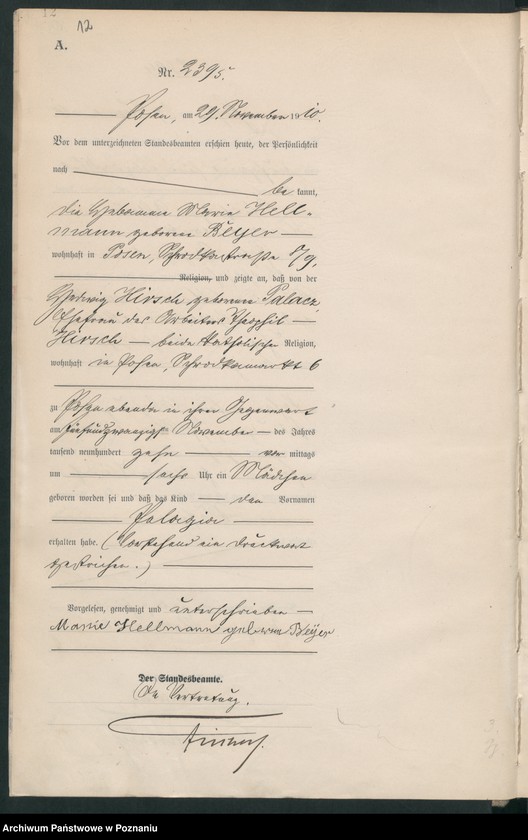 12
12
A.
Nr. 2395.
Posen, am 29. November 1910.
Vor dem unterzeichneten Standesbeamten erschien heute, der Persönlichkeit
nach
be kannt,
die Hebamme Marie Hell-
mann geborene Beyer
wohnhaft in Posen, Schrodkastraße 8/9.
Religion, und zeigte an, daß von der
Hedwig Hirsch geborenen Palacz,
Ehefrau des Arbeiters Theophil
Hirsch — beide katholischer Religion,
wohnhaft in Posen, Schrodkamarkt 6
zu Posen ebenda in ihrer Gegenwart
am fünfundzwanzigsten November des Jahres
tausend neunhundert zehn vor mittags
um sechs Uhr ein Mädchen
geboren worden sei und daß das Kind den Vornamen
Pelagia
erhalten habe. (Vorstehend ein Druckwort
gestrichen.)
Vorgelesen, genehmigt und unterschrieben
Marie Hellmann geborene Beÿer
Der Standesbeamte.
In Vertretung.
Archiwum Państwowe w Poznaniu